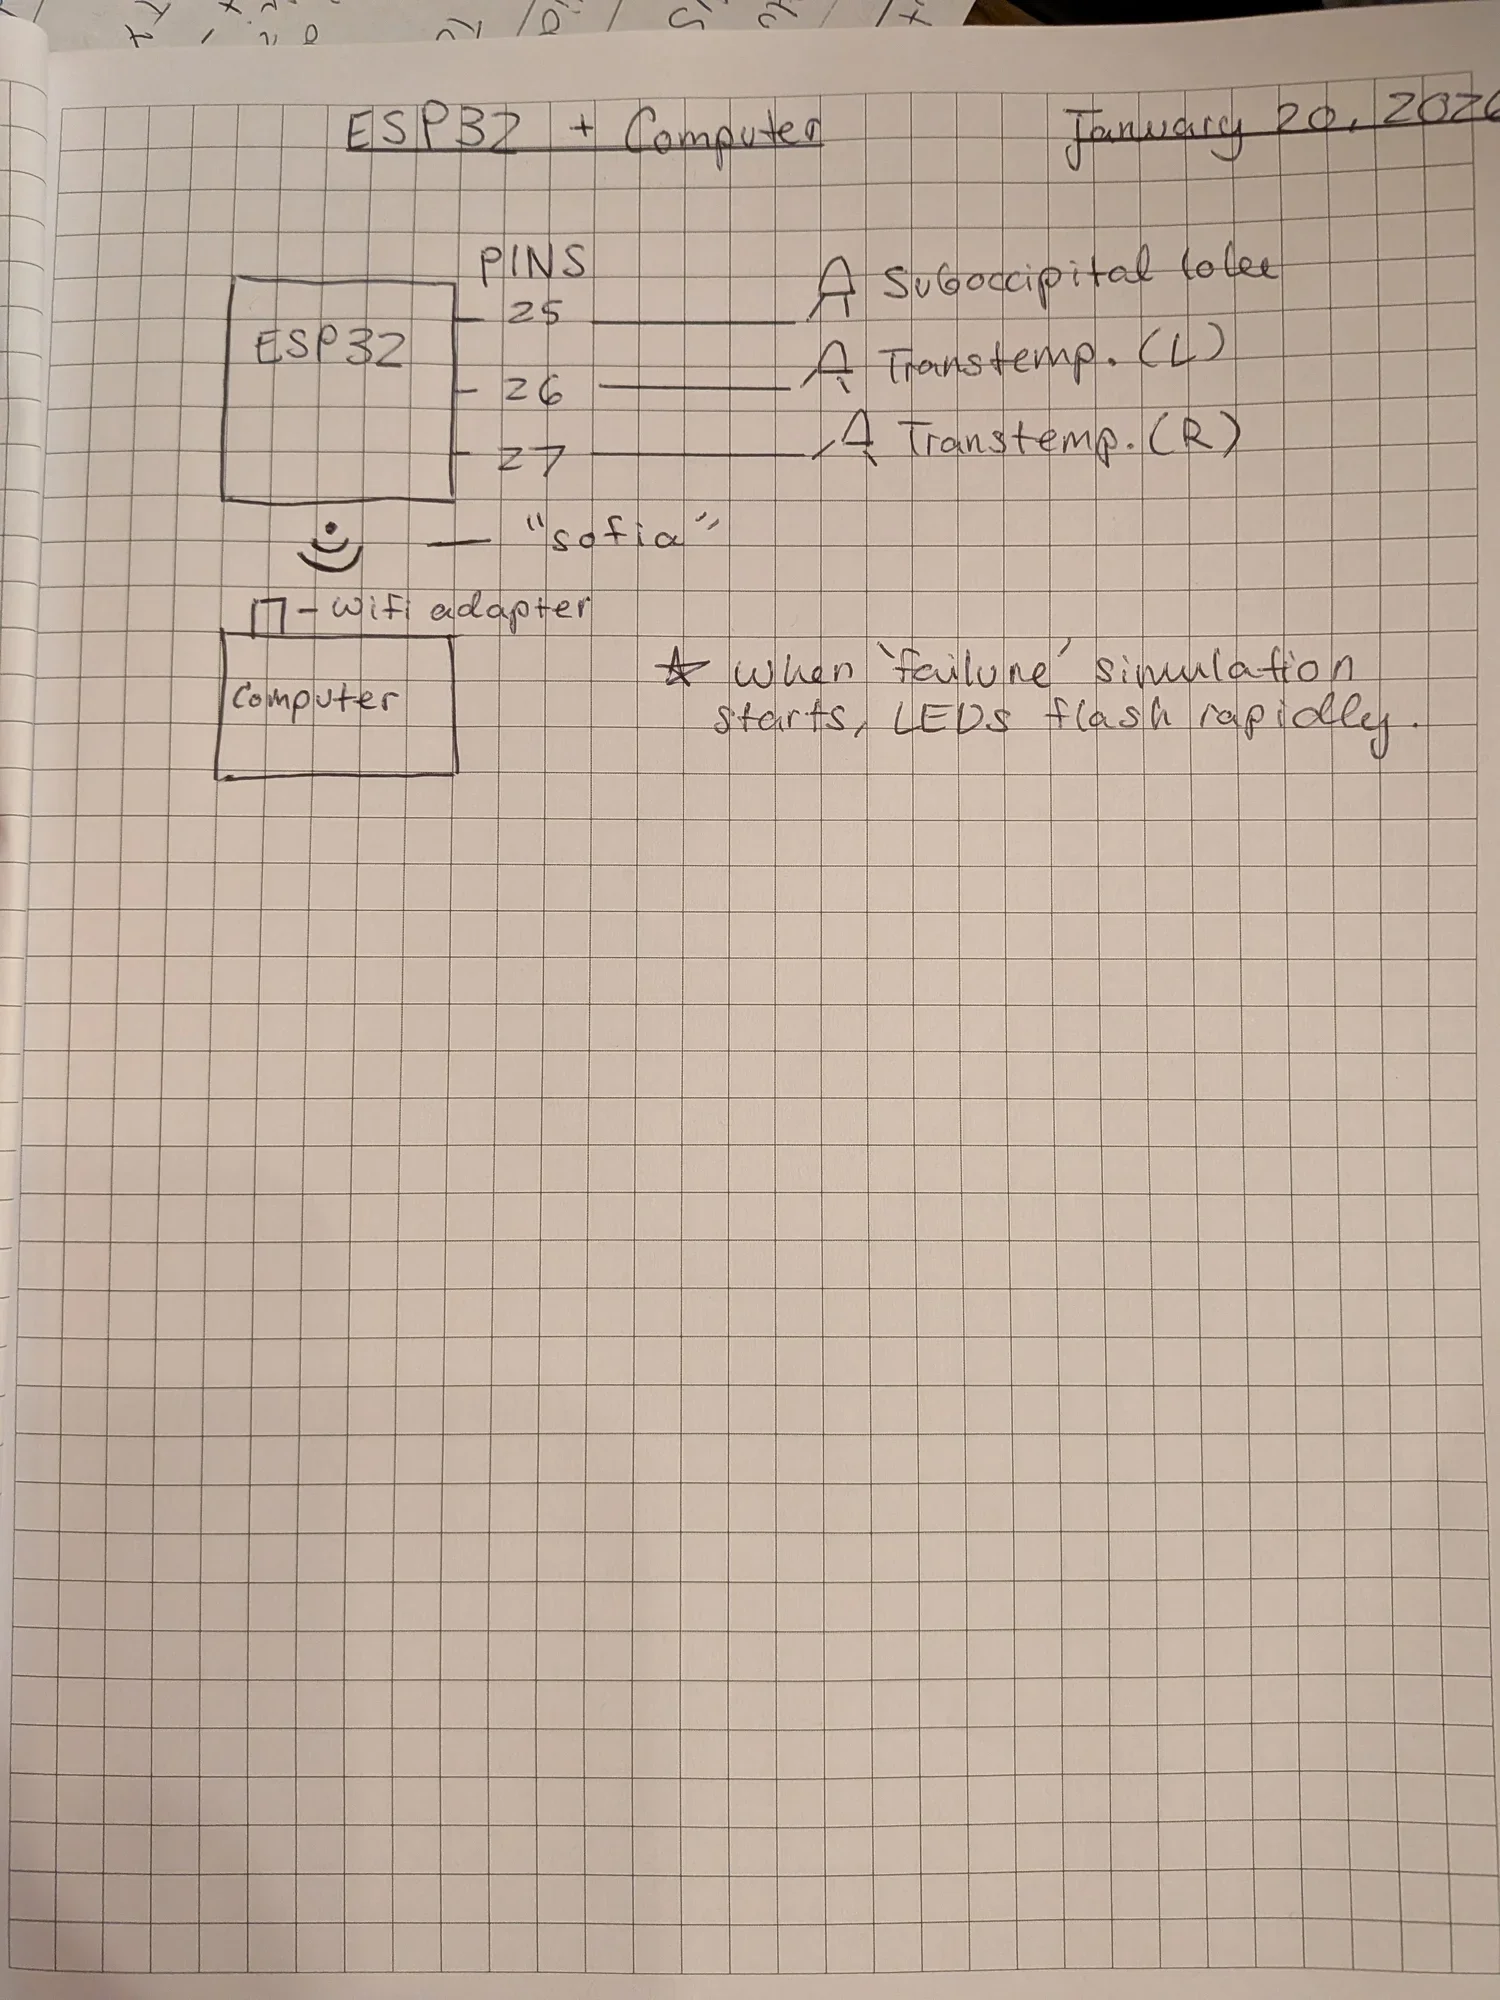 ESP32 + Computer
January 20, 2026
PINS
ESP32
25
Suboccipital lobe
26
Transtemp. (L)
27
Transtemp. (R)
"sofia"
- wifi adapter
Computer
☆ when 'failure' simulation
starts, LEDs flash rapidly.